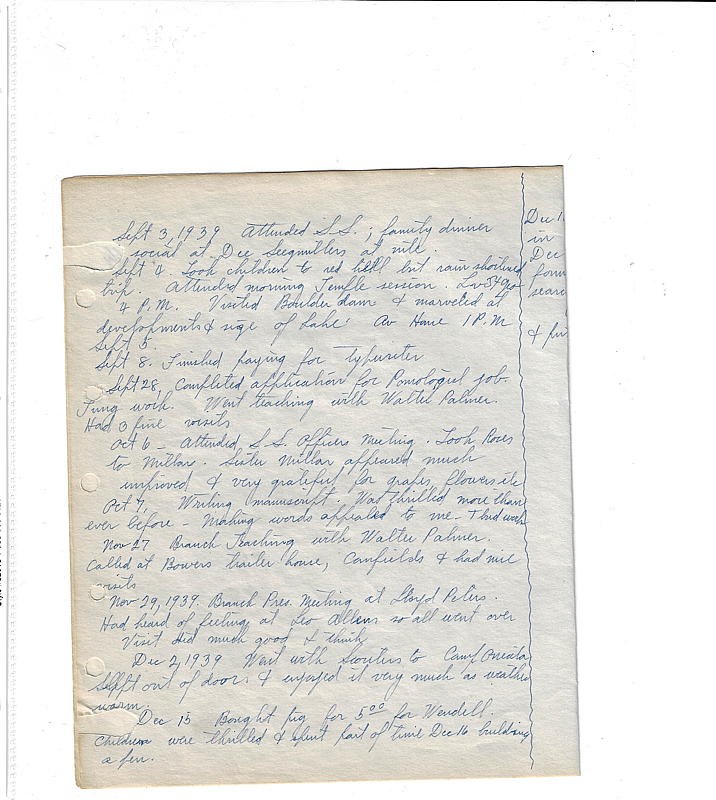 Sept 3, 1939 Attended S.S. ; family dinner
social at Dee Seegmillers at nite.
Sept 4. Took children to red hill but rain shortened
trip. Attended morning Temple session. Lv St Geo
4 P.M. Visited Boulder dam & marveled at
developments & size of Lake. Av Home 1 P.M
Sept 5.
Sept 8. Finished paying for typewriter
Sept 28, Completed application for Pomologist job.
Tung work. Went teaching with Walter Palmer.
Had 3 fine visits
Oct 6 - Attended S.S. Officers Meeting. Took Roses
to Millars. Sister Millar appeared much
improved & very grateful for grapes, flowers etc
Oct 7, Writing manuscript. Was thrilled more than
ever before - Making words appealed to me.
Nov 27 Branch Teaching with Walter Palmer.
Called at Bowers trailer house, Canfields & had nice
visits
Nov 29, 1939. Branch Pres. Meeting at Lloyd Peters.
Had heard of feeling at Leo Allens so all went over
Visit did much good I think
Dec 2, 1939 Went with Scouters to Camp
Slept out of doors & enjoyed it very much as weather
warm.
Dec 15 Bought pig for 5.00 for Wendell.
Children were thrilled & spent part of time Dec 16 building
a pen.
Dec 1
in
Dec
form
sear
& fur